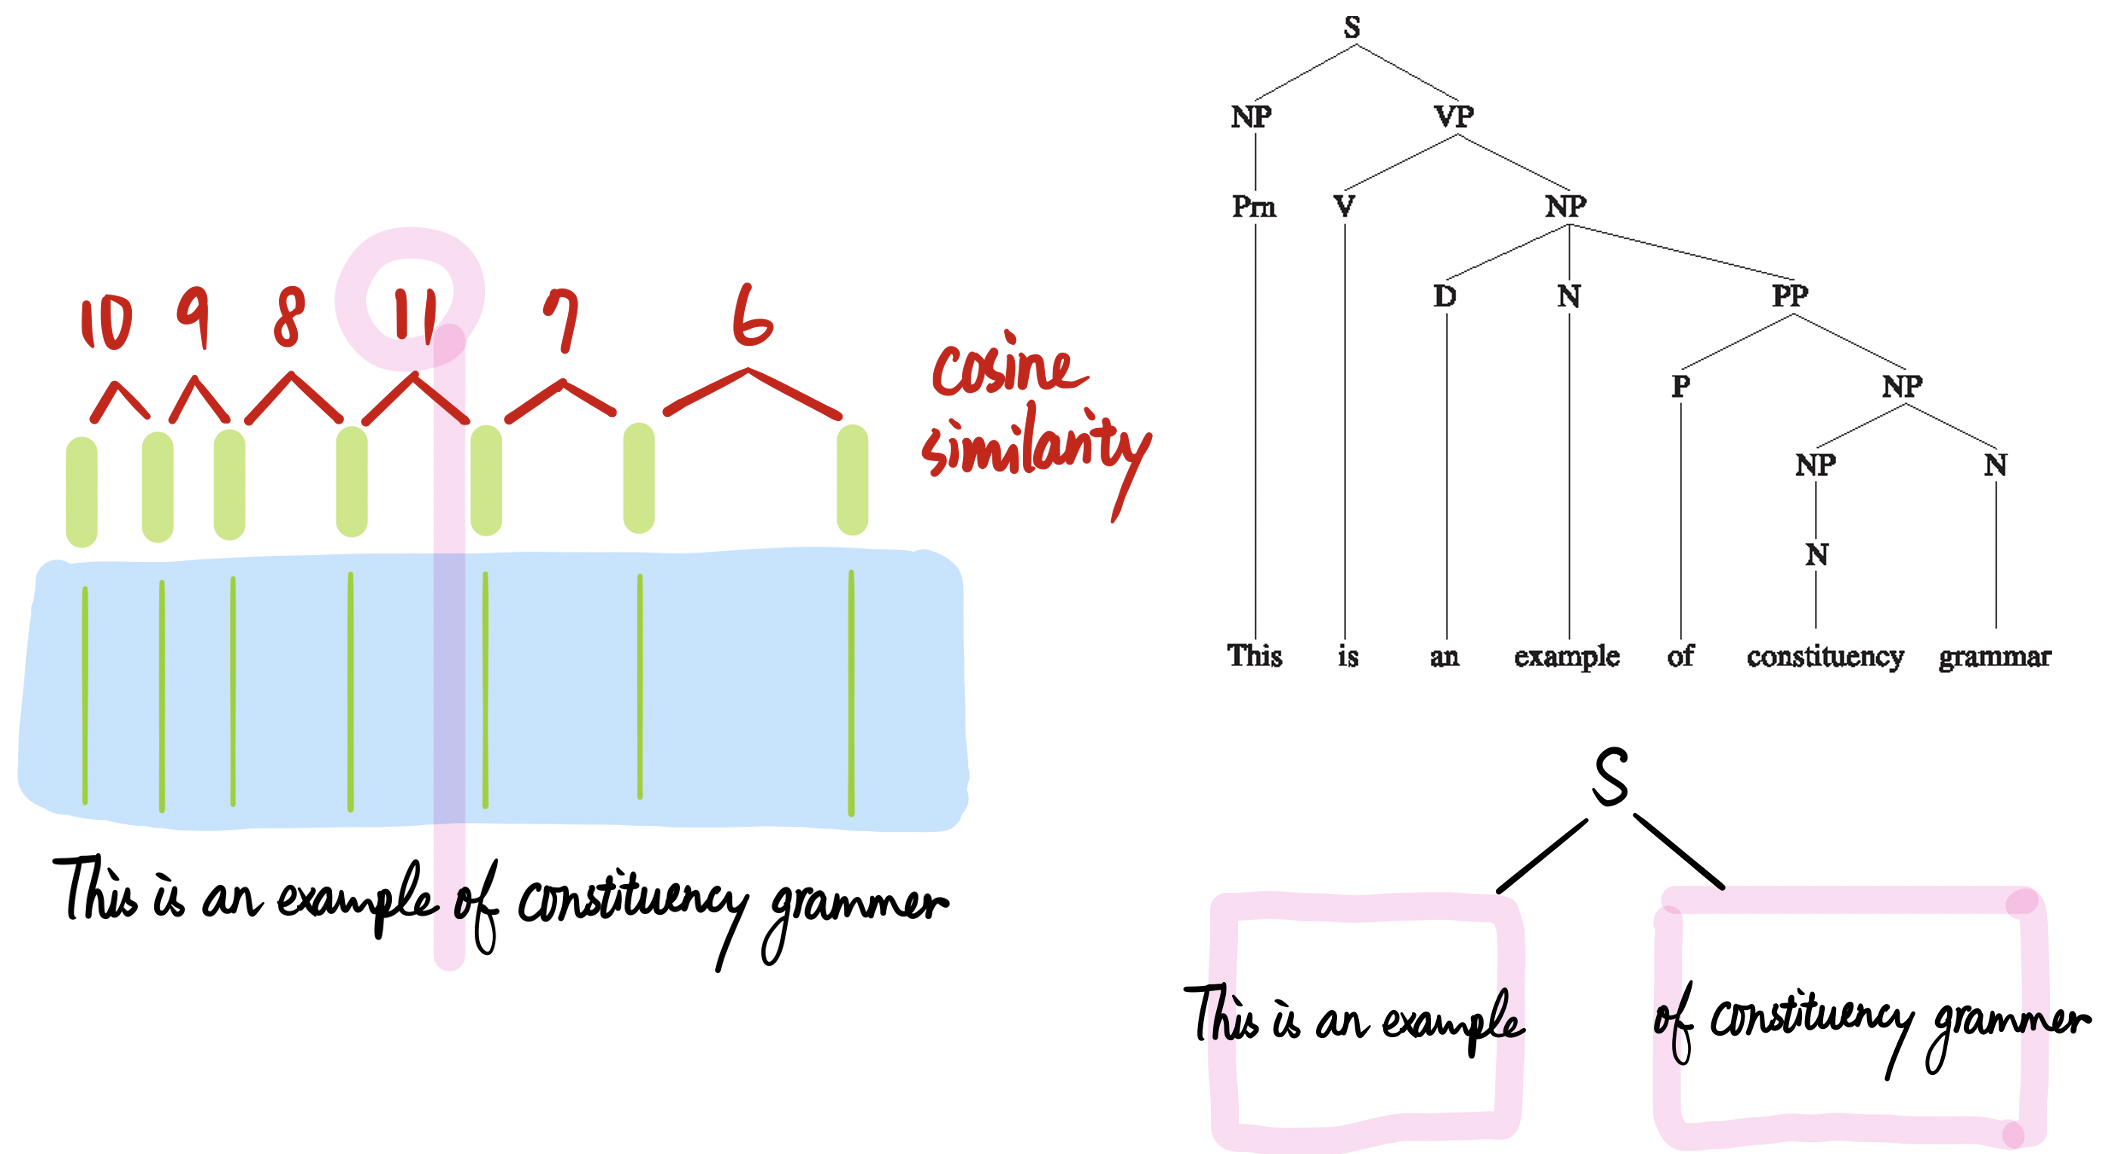 10 9 8 11 7 6
cosine
similarity
This is an example of constituency grammer
S
NP VP
Prn V NP
D N PP
P NP
NP N
N
This is an example of constituency grammar
S
This is an example of constituency grammer